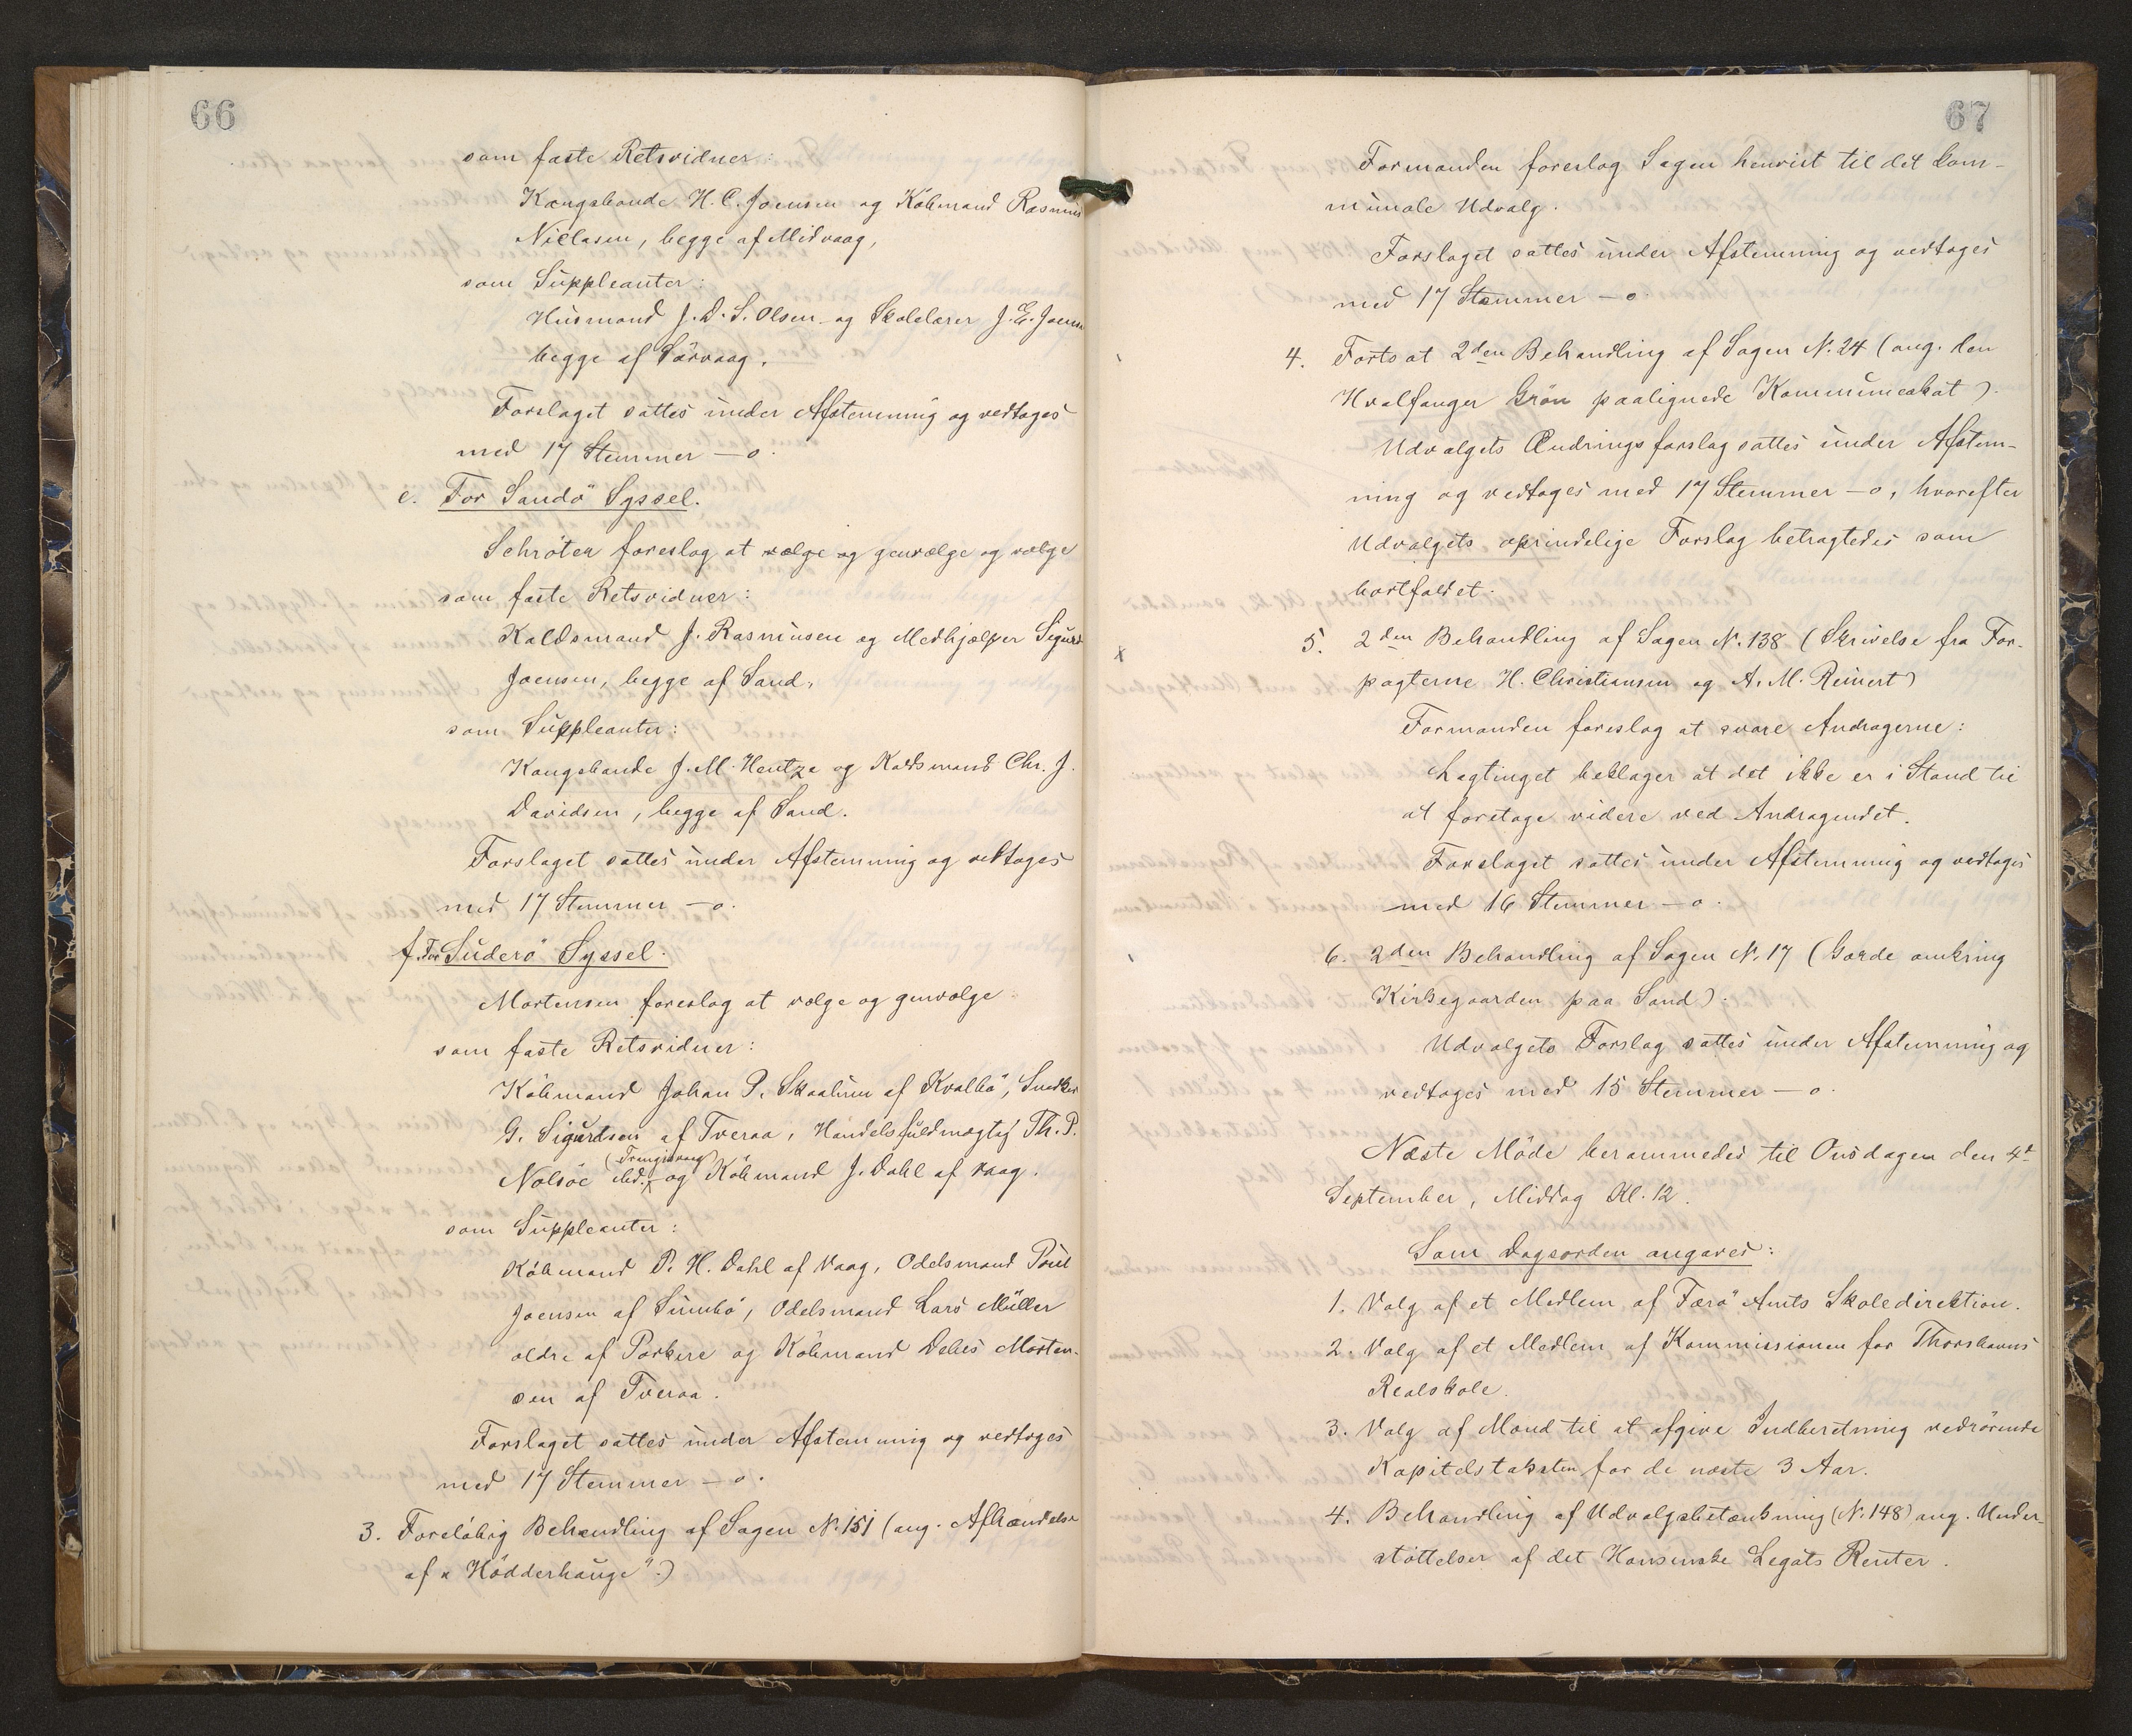 66
som faste Retsvidner:
Kongsbonde H. C. Joensen og Købmand Rasmus
Niclasen, begge af Midvaag,
som Suppleanter:
Husmand J. D. S. Olsen og Skolelærer J. E. Joensen
begge af Sörvaag.
Forslaget sattes under Afstemning og vedtoges
med 17 Stemmer – o.
e. For Sandö Syssel.
Schröter foreslog at vælge og genvælge og vælge
som faste Retsvidner:
Kaldsmand J. Rasmusen og Medhjælper Sigurd
Joensen, begge af Sand,
som Suppleanter:
Kongsbonde J. M. Hentze og Kaldsmand Chr. J.
Davidsen, begge af Sand.
Forslaget sattes under Afstemning og vedtoges
med 17 Stemmer – o.
f. For Suderö Syssel.
Mortensen foreslog at vælge og genvælge
som faste Retsvidner:
Köbmand Johan P. Skaalum af Kvalbö, Snedker
G. Sigurdsen af Tveraa, Handelsfuldmægtig Th. P.
(Trangisvaag)
Nolsöe ibd. og Köbmand J. Dahl af Vaag.
som Suppleanter:
Köbmand P. H. Dahl af Vaag, Odelsmand Poul
Joensen af Sumbö, Odelsmand Lars Müller
ældre af Porkere og Köbmand Debes Morten-
sen af Tveraa.
Forslaget sattes under Afstemning og vedtoges
med 17 Stemmer – o.
3. Foreløbig Behandling af Sagen N. 151 (ang. Afhændelse
af "Hödderhauge".)
67
Formanden foreslog Sagen henvist til det kom-
munale Udvalg.
Forslaget sattes under Afstemning og vedtoges
med 17 Stemmer – o.
4. Forts at 2den Behandling af Sagen N. 24 (ang. den
Hvalfanger Grön paalignede Kommuneskat).
Udvalgets Ændringsforslag sattes under Afstem-
ning og vedtoges med 17 Stemmer – o, hvorefter
Udvalgets oprindelige Forslag betragtedes som
bortfaldet.
x 5. 2den Behandling af Sagen N. 138 (Skrivelse fra For-
pagterne H. Christiansen og A. M. Reinert)
Formanden foreslog at svare Andragerne:
Lagtinget beklager at det ikke er i Stand til
at foretage videre ved Andragendet.
Forslaget sattes under Afstemning og vedtoges
med 16 Stemmer – o.
6. 2den Behandling af Sagen N. 17 (Gærde omkring
Kirkegaarden paa Sand).
Udvalgets Forslag sattes under Afstemning og
vedtoges med 15 Stemmer – o.
Næste Möde berammedes til Onsdagen den 4d
September, Middag Kl. 12.
Som Dagsorden angaves:
1. Valg af et Medlem af Færö Amts Skoledirektion.
2. Valg af et Medlem af Kommissionen for Thorshavns
Realskole.
3. Valg af Mænd til at afgive Indberetning vedrörende
Kapitelstaksten for de næste 3 Aar.
4. Behandling af Udvalgsbetænkning (N. 148) ang. Under-
støttelser af det Hansenske Legats Renter.